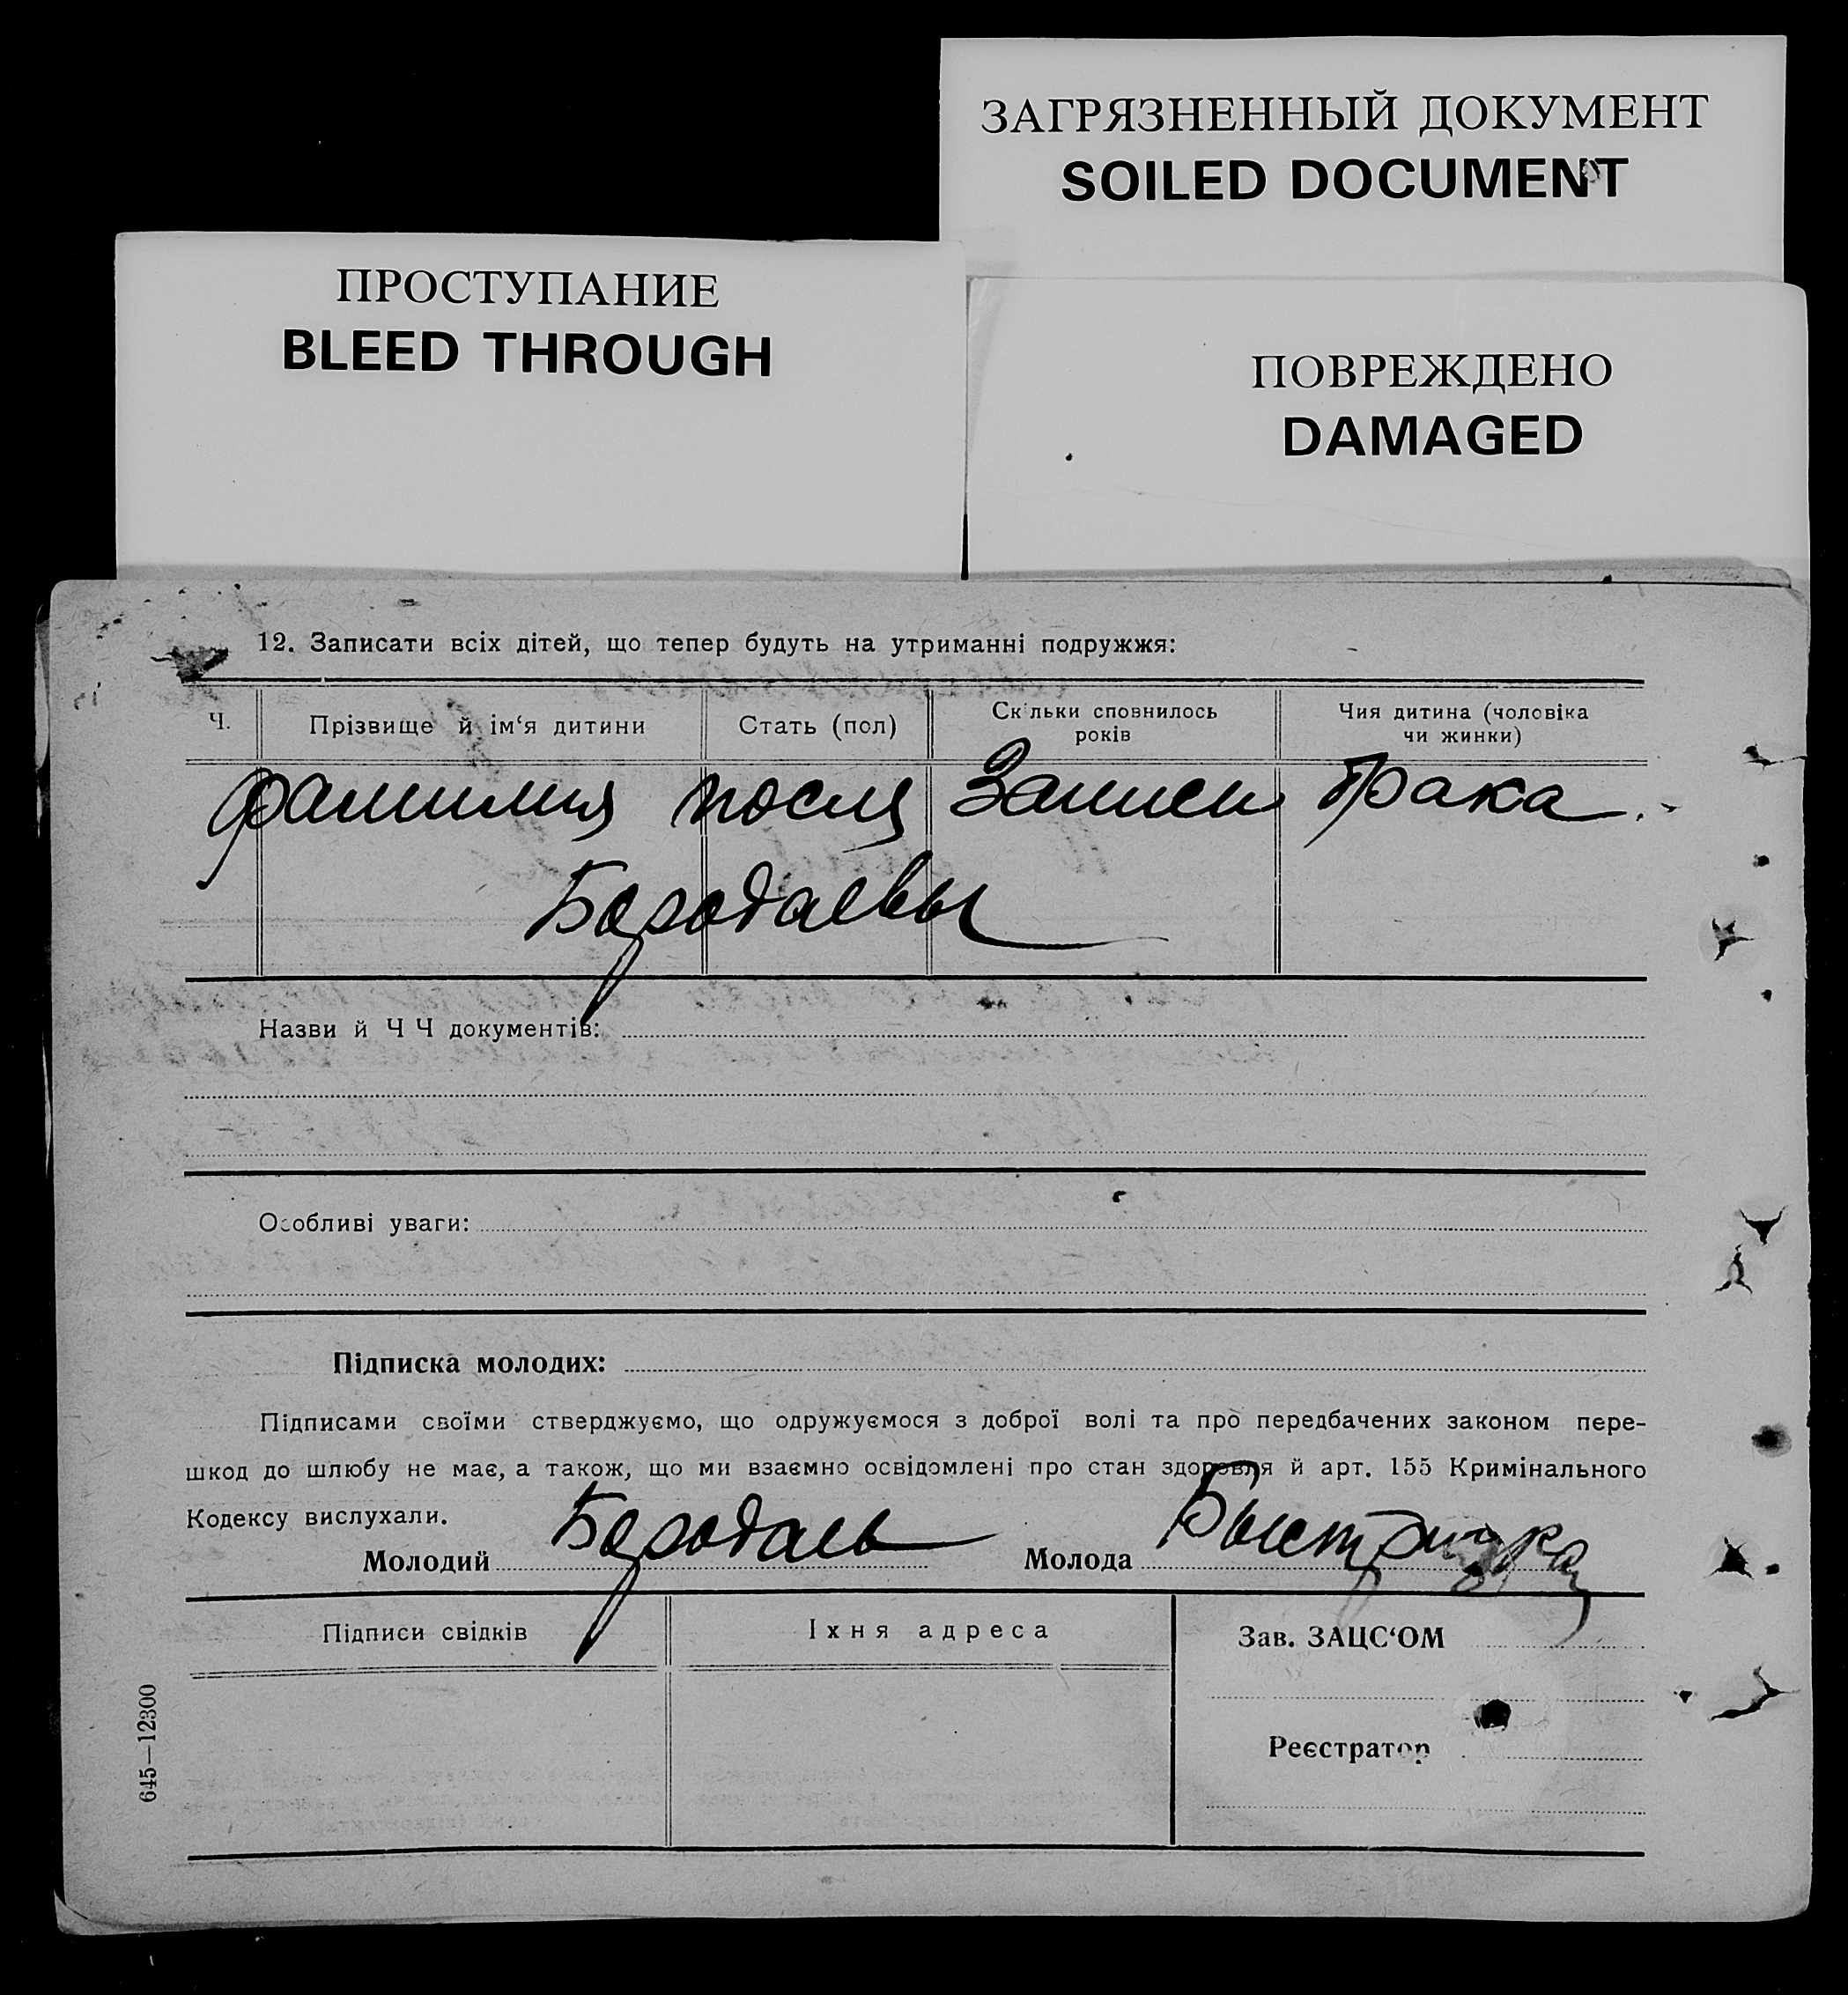 ЗАГРЯЗНЕННЫЙ ДОКУМЕНТ
SOILED DOCUMENT
ПРОСТУПАНИЕ
BLEED THROUGH
ПОВРЕЖДЕНО
DAMAGED
12. Записати всіх дітей, що тепер будуть на утриманні подружжя:
Ч. Прізвище й ім‘я дитини Стать (пол) Скільки сповнилось років Чия дитина (чоловіка чи жинки)
фамилия после записи брака.
Бородаевы
Назви й Ч Ч документів:
Особливі уваги:
Підписка молодих:
Підписами своїми стверджуємо, що одружуємося з доброї волі та про передбачених законом пере-
шкод до шлюбу не має, а також, що ми взаємно освідомлені про стан здоровля й арт. 155 Кримінального
Кодексу вислухали.
Молодий Бородаев Молода
Підписи свідків Їхня адреса Зав. ЗАЦС‘ОМ
Реєстратор
645—12300